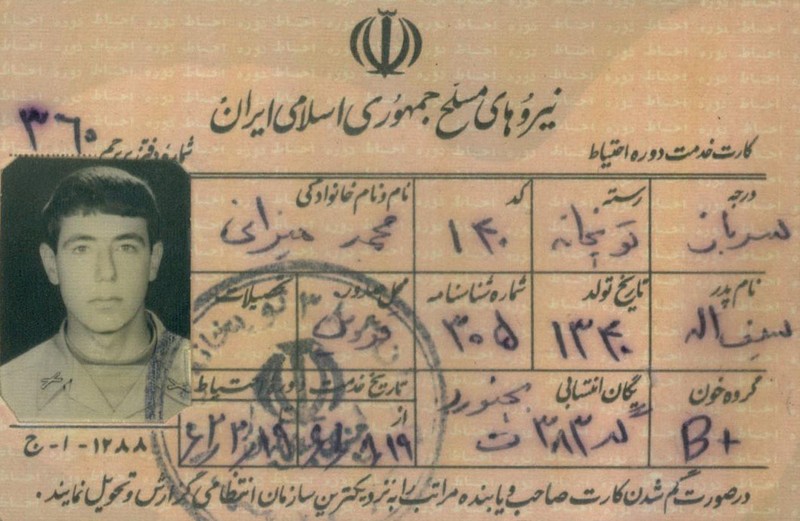 نیروهای مسلح جمهوری اسلامی ایران
کارت خدمت دوره احتیاط
شماره دفتر پرچم ۳۶۰
درجه رسته کد نام و نام خانوادگی
سرباز توپخانه ۱۴۰ محمد میزانی
نام پدر تاریخ تولد شماره شناسنامه محل صدور تحصیلات
سیف اله ۱۳۴۰ ۳۰۵
گروه خون یگان انتسابی تاریخ خدمت دوره احتیاط
B+ بجنورد
گد ۳۸۳ ت
از
۱۲۸۸ - ا - ج
درصورت گم شدن کارت صاحب و یا بنده مراتب را به نزدیکترین سازمان انتظامی گزارش و تحویل نمایند.